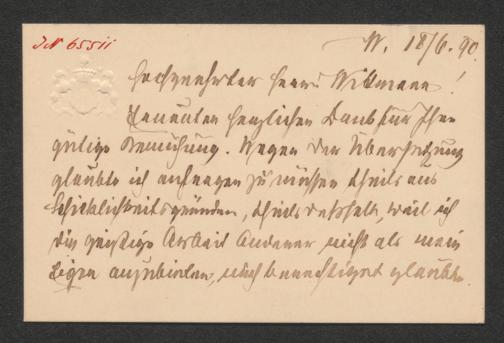 JN 65511
W. 18/6. 90.
Hochgeehrter Herr Wittmann!
Erneuten herzlichen Dank für Ihre
gütige Bemühung. Wegen der Übersetzung
glaubte ich anfragen zu müssen theils aus
Schicklichkeitsgründen, theils deßhalb, weil ich
die geistige Arbeit Anderer nicht als mein
Eigen anzubieten, mich berechtigt glaubte.